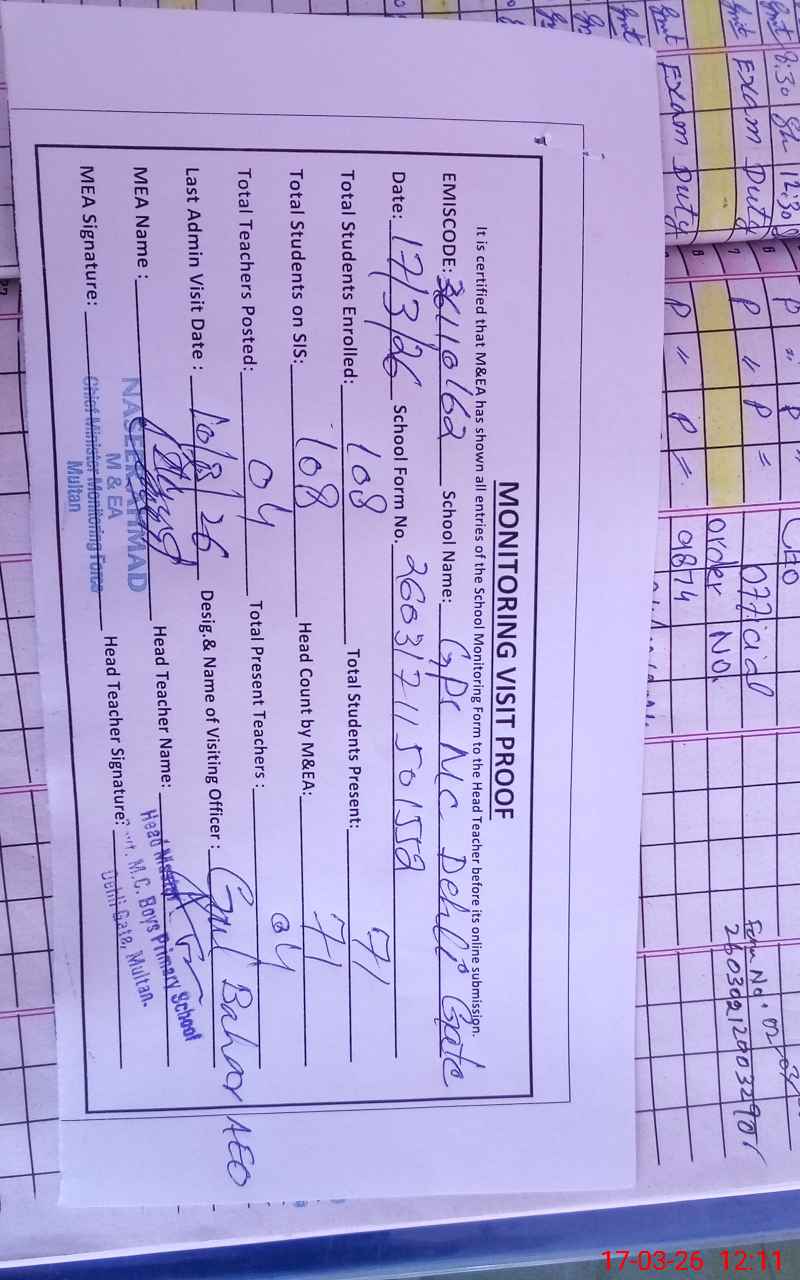 MONITORING VISIT PROOF
It is certified that M&EA has shown all entries of the School Monitoring Form to the Head Teacher before its online submission.
EMISCODE: 36110162 School Name: GPS MC Dehli Gate
Date: 17/3/26 School Form No. 26031711501552
Total Students Enrolled: 108 Total Students Present: 71
Total Students on SIS: 108 Head Count by M&EA: 71
Total Teachers Posted: 04 Total Present Teachers : 04
Last Admin Visit Date : 10/3/26 Desig.& Name of Visiting Officer : Gul Bahar AEO
MEA Name : Head Teacher Name:
MEA Signature: Head Teacher Signature:
NASEER AHMAD
M & EA
Chief Minister Monitoring Force
Multan
Head Master
Govt. M.C. Boys Primary School
Dehli Gate, Multan.
8:30 12:30
Exam Duty
Exam Duty
P " P =
P " P =
official
order NO.
9874
Form No.
17-03-26 12:11